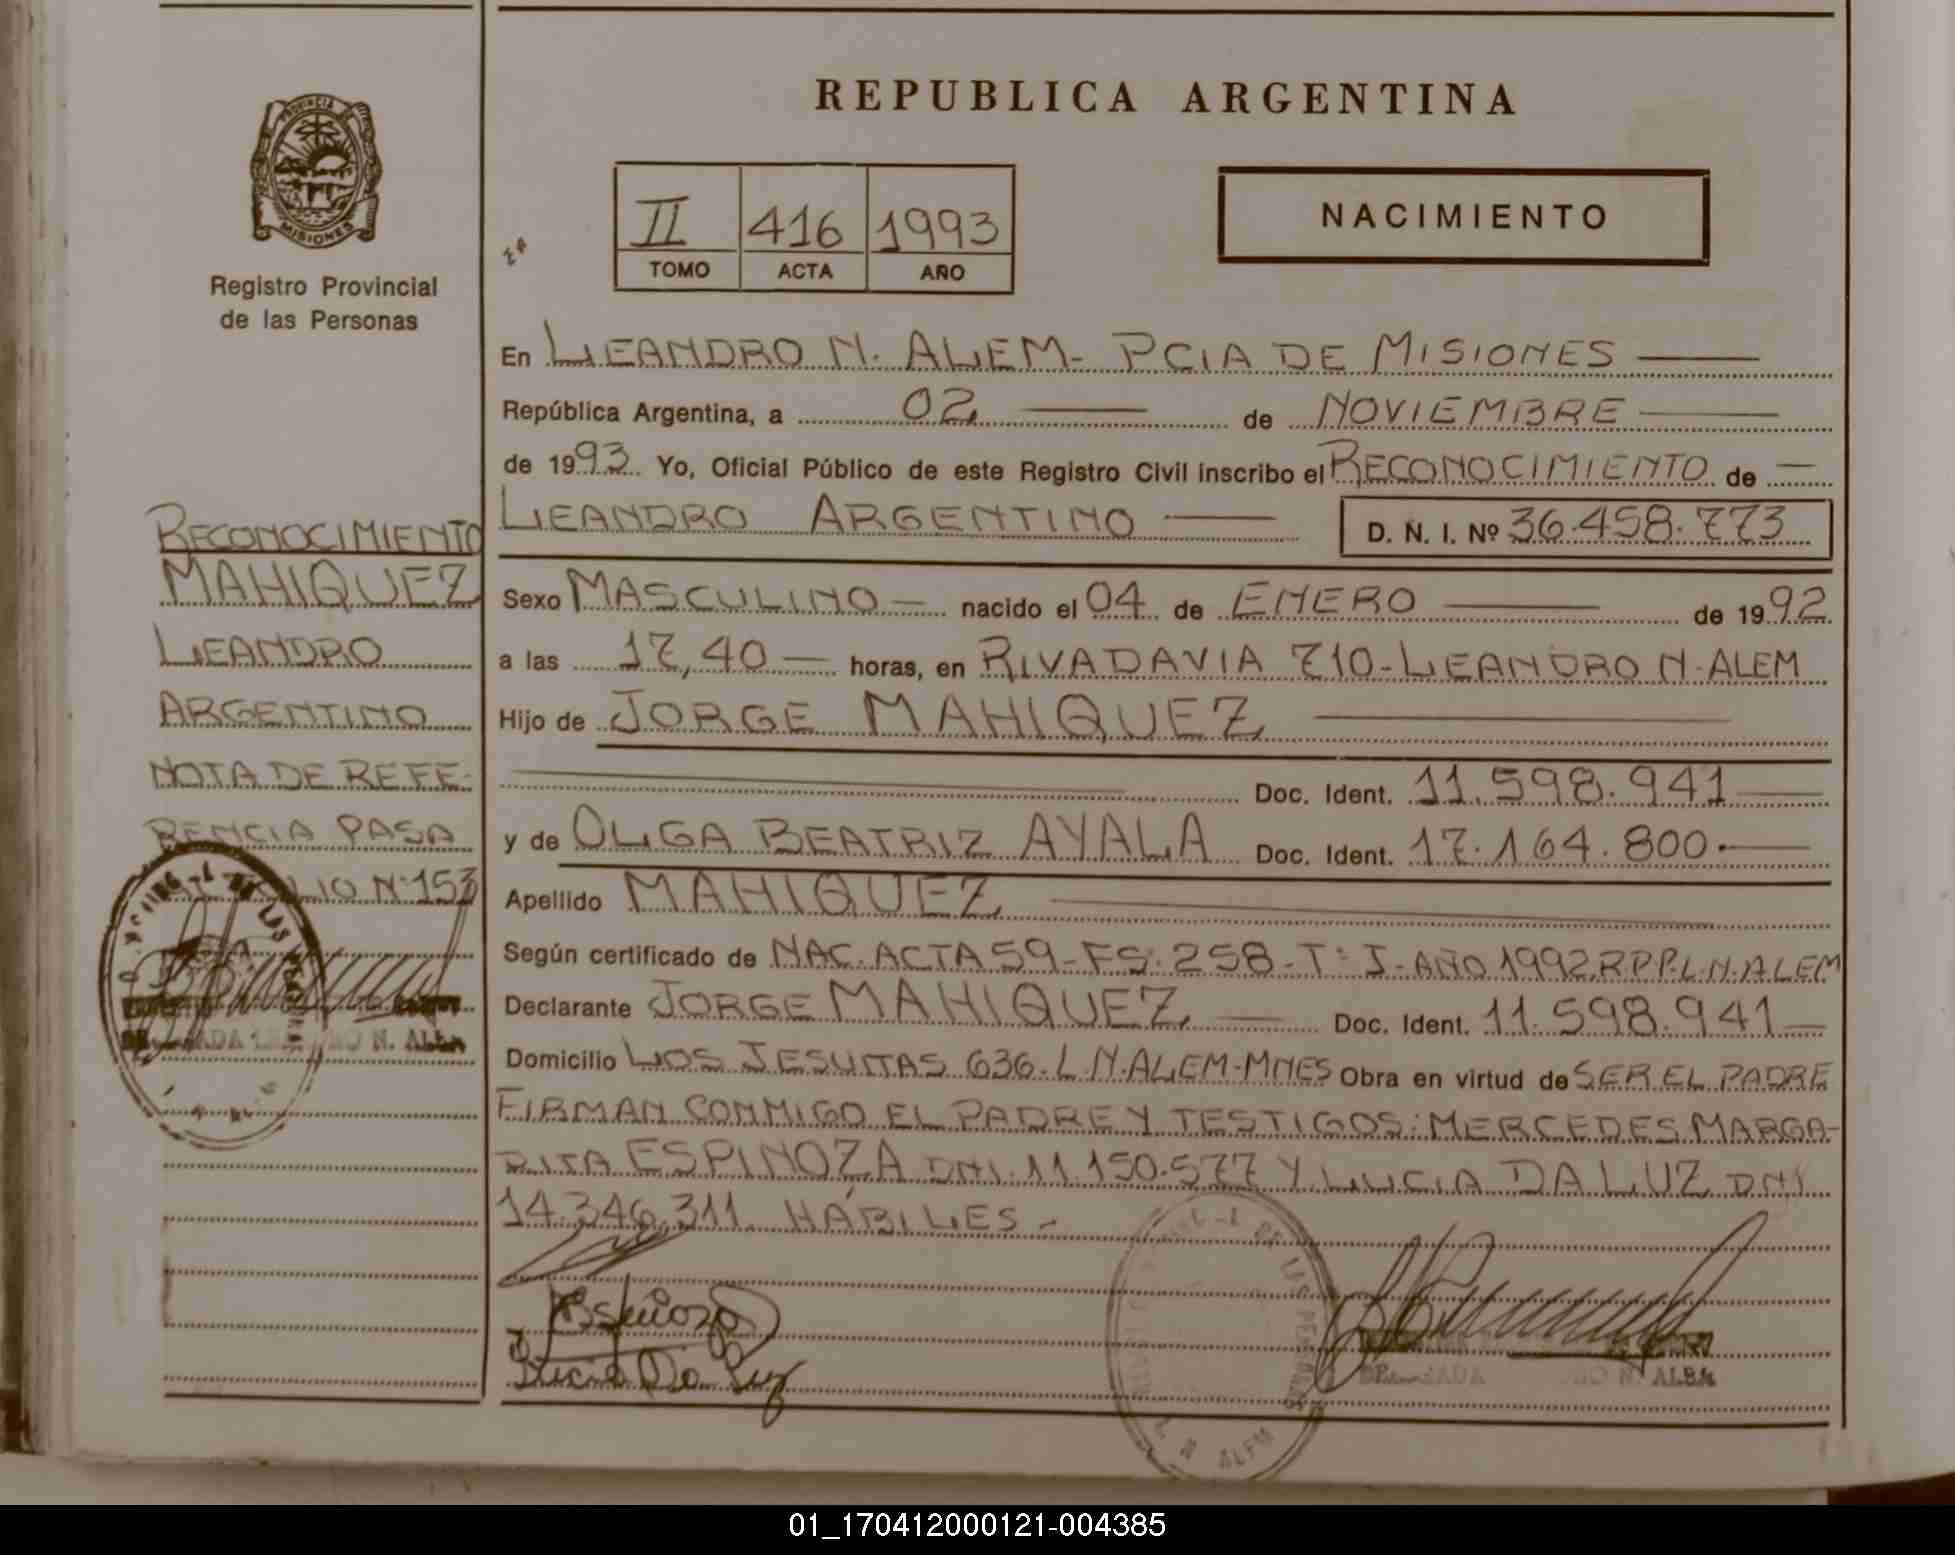 REPUBLICA ARGENTINA
PROVINCIA DE MISIONES
Registro Provincial
de las Personas
II 416 1993
TOMO ACTA AÑO
NACIMIENTO
En LEANDRO N. ALEM - PCIA DE MISIONES
República Argentina, a 02 de NOVIEMBRE
de 1993 Yo, Oficial Público de este Registro Civil inscribo el RECONOCIMIENTO de
LEANDRO ARGENTINO D. N. I. Nº 36.458.773
Sexo MASCULINO nacido el 04 de ENERO de 1992
a las 17,40 horas, en RIVADAVIA 710 - LEANDRO N. ALEM
Hijo de JORGE MAHIQUEZ
Doc. Ident. 11.598.941
y de OLGA BEATRIZ AYALA Doc. Ident. 17.164.800.
Apellido MAHIQUEZ
Según certificado de NAC. ACTA 59 - FS: 258 - T: I - AÑO 1992 R.P.P. L.N. ALEM
Declarante JORGE MAHIQUEZ Doc. Ident. 11.598.941
Domicilio LOS JESUITAS 636 - L.N. ALEM - MNES Obra en virtud de SER EL PADRE
FIRMAN CONMIGO EL PADRE Y TESTIGOS: MERCEDES MARGA-
RITA ESPINOZA DNI. 11.150.577 Y LUCIA DA LUZ DNI
14.346.311 HÁBILES -
RECONOCIMIENTO
MAHIQUEZ
LEANDRO
ARGENTINO
NOTA DE REFE-
RENCIA PASA
FOLIO Nº 153
Espinoza
Lucia Da Luz
01_170412000121-004385